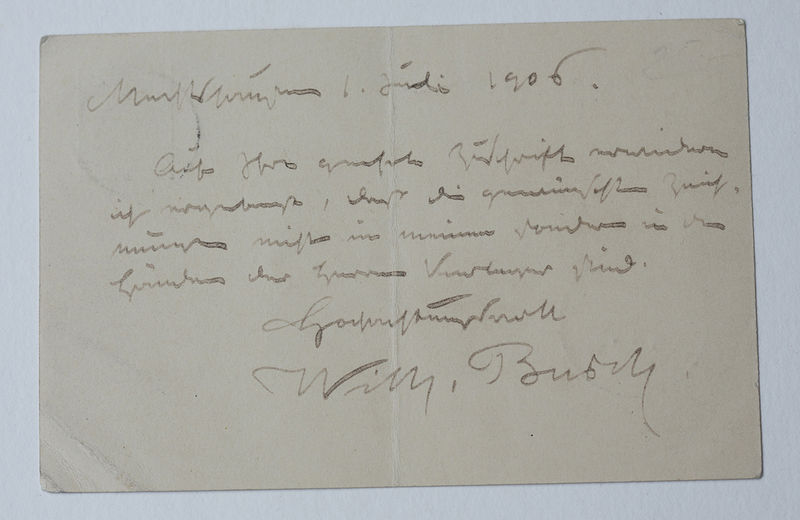 Mechtshausen 1. Juli 1906.
Auf Ihre geehrte Zuschrift erwiedere
ich ergebenst, daß die gewünschten Zeich-
nungen nicht in meinen sondern in den
Händen der Herrn Verleger sind.
Hochachtungsvoll
Wilh. Busch